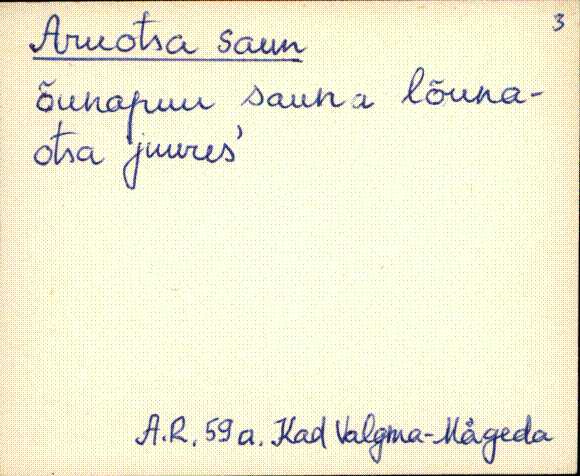 3
Aruotsa saun
õunapuu sauna lõuna-
otsa juures'
A.R. 59 a. Kad Valgma-Mågeda